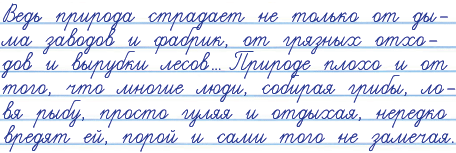 Ведь природа страдает не только от ды-
ма заводов и фабрик, от грязных отхо-
дов и вырубки лесов... Природе плохо и от
того, что многие люди, собирая грибы, ло-
вя рыбу, просто гуляя и отдыхая, нередко
вредят ей, порой и сами того не замечая.